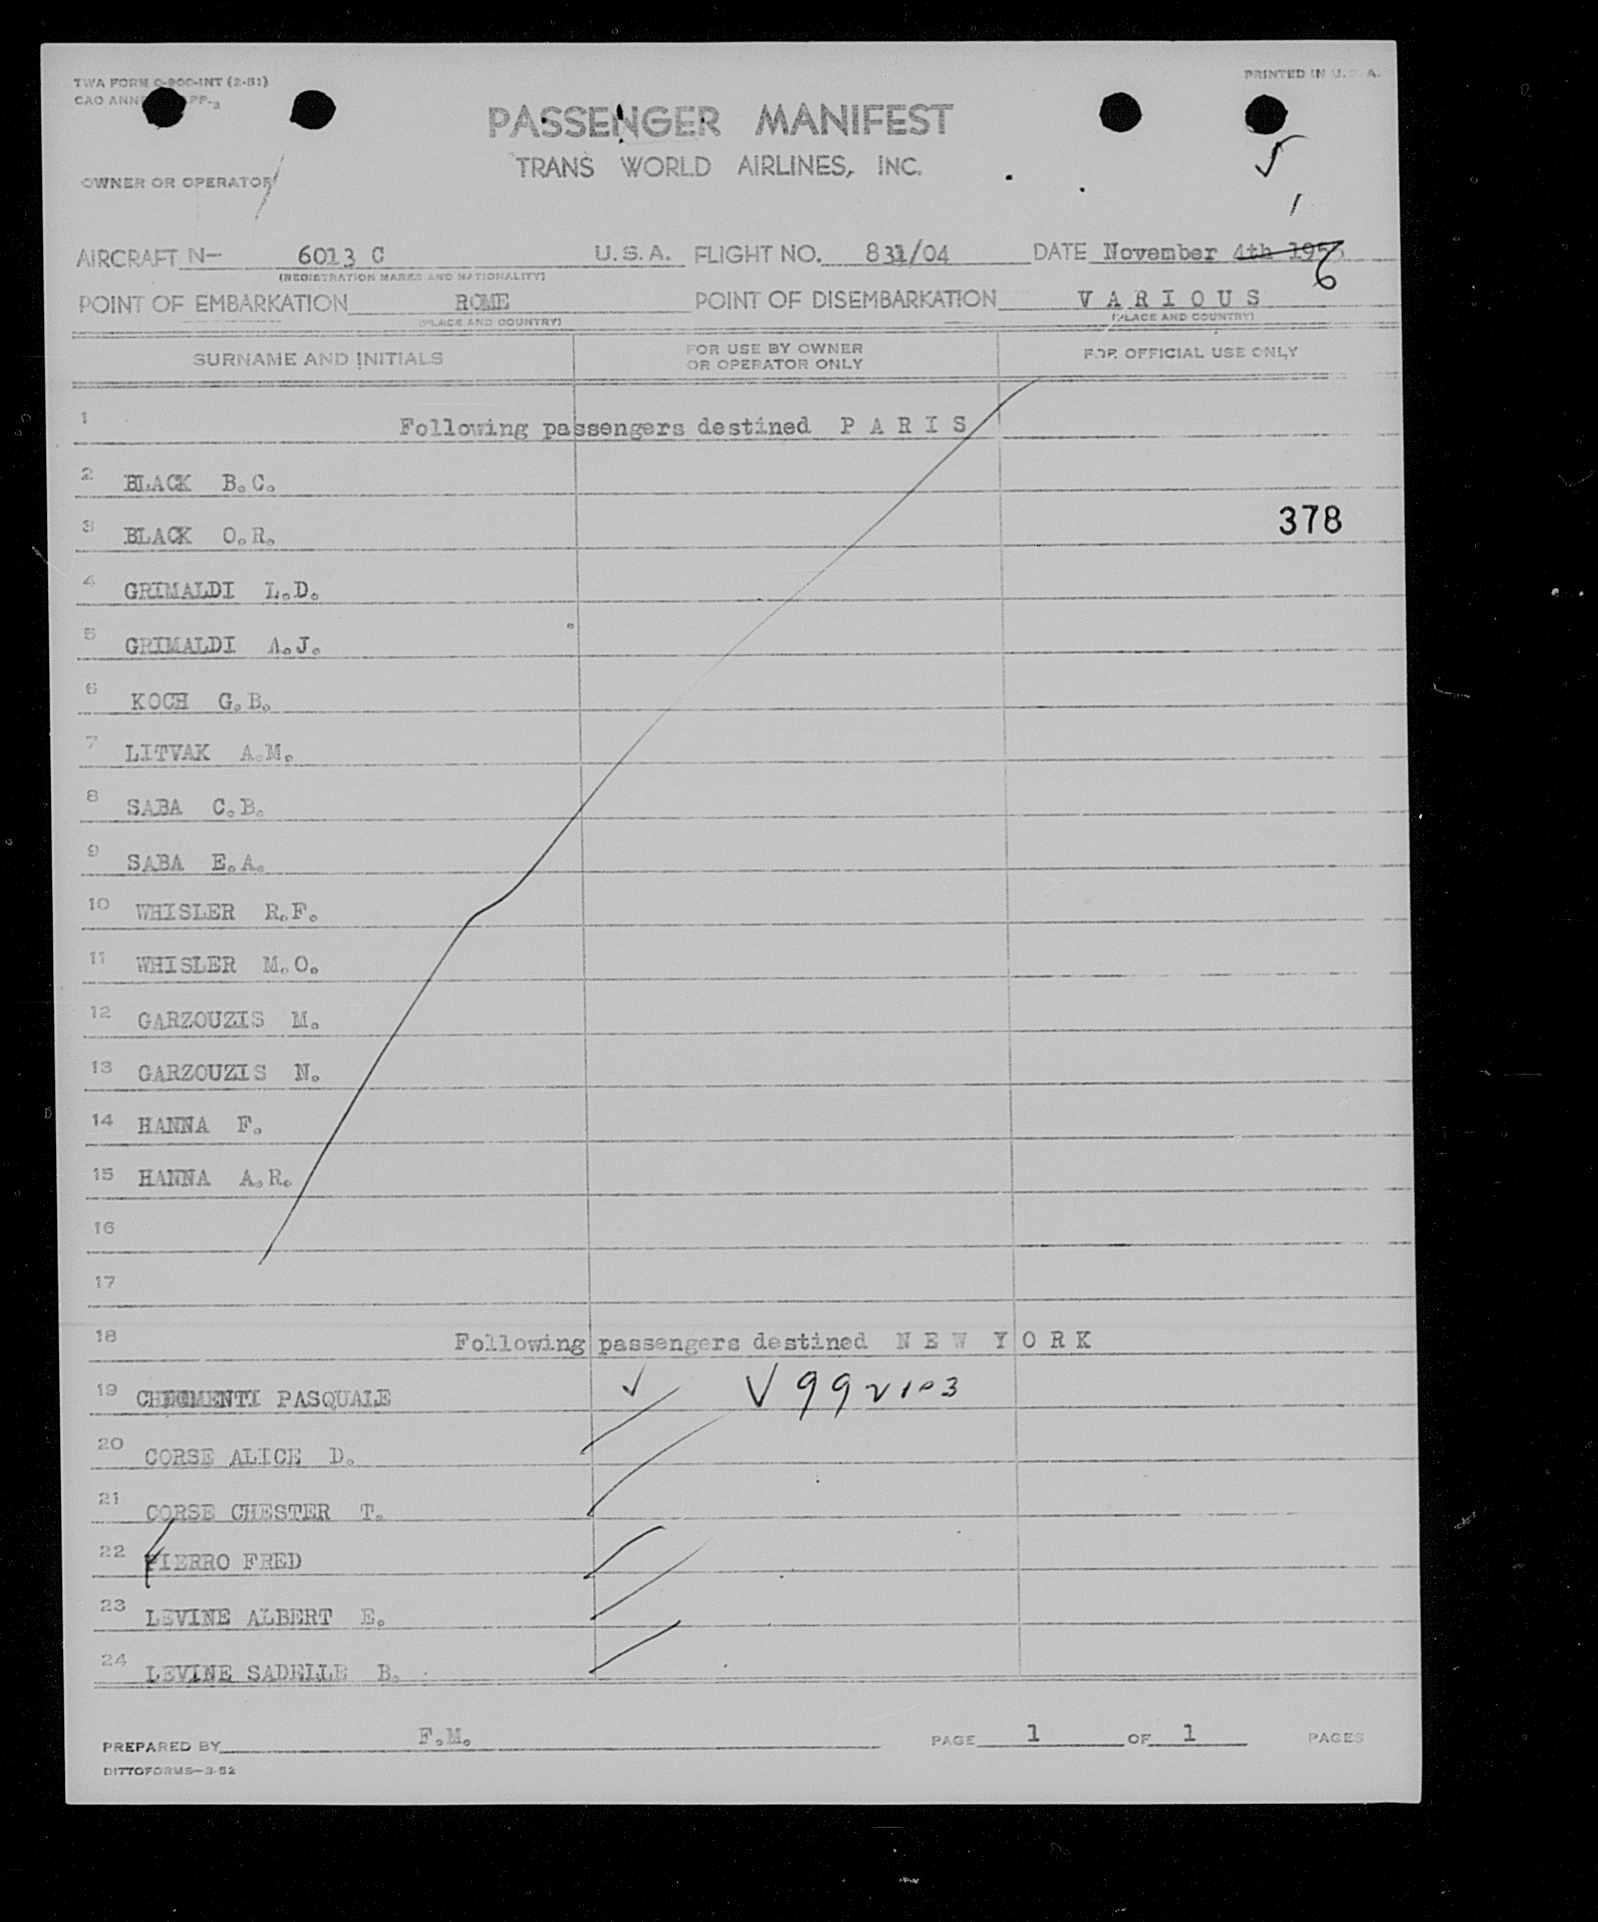 TWA FORM O-900-INT (2-51)
PRINTED IN U. S. A.
CAO ANNE PP-3
PASSENGER MANIFEST
TRANS WORLD AIRLINES, INC.
OWNER OR OPERATOR
AIRCRAFT N- 6013 C U.S.A. FLIGHT NO. 831/04 DATE November 4th 195 6
(REGISTRATION MARKS AND NATIONALITY)
POINT OF EMBARKATION ROME POINT OF DISEMBARKATION V A R I O U S
(PLACE AND COUNTRY) (PLACE AND COUNTRY)
SURNAME AND INITIALS FOR USE BY OWNER OR OPERATOR ONLY FOR OFFICIAL USE ONLY
1 Following passengers destined P A R I S
2 BLACK B.C.
3 BLACK O.R. 378
4 GRIMALDI L.D.
5 GRIMALDI A.J.
6 KOCH G.B.
7 LITVAK A.M.
8 SABA C.B.
9 SABA E.A.
10 WHISLER R.F.
11 WHISLER M.O.
12 GARZOUZIS M.
13 GARZOUZIS N.
14 HANNA F.
15 HANNA A.R.
16
17
18 Following passengers destined N E W Y O R K
19 PASQUALE V 992103
20 CORSE ALICE D.
21 CORSE CHESTER T.
22 FIERRO FRED
23 LEVINE ALBERT E.
24 LEVINE SADELLE B.
PREPARED BY F.M. PAGE 1 OF 1 PAGES
DITTOFORMS-3-52